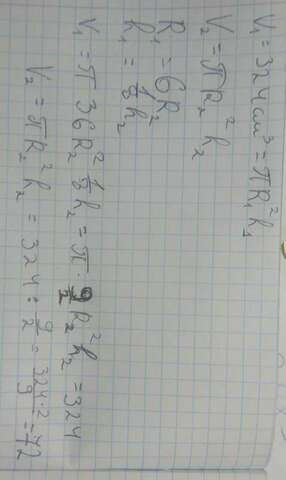 V₁ = 324 см³ = πR₁²h₁
V₂ = πR₂²h₂
R₁ = 6R₂
h₁ = 1/8 h₂
V₁ = π 36R₂² 1/8 h₂ = π · 9/2 R₂² h₂ = 324
V₂ = πR₂²h₂ = 324 : 9/2 = 324·2/9 = 72